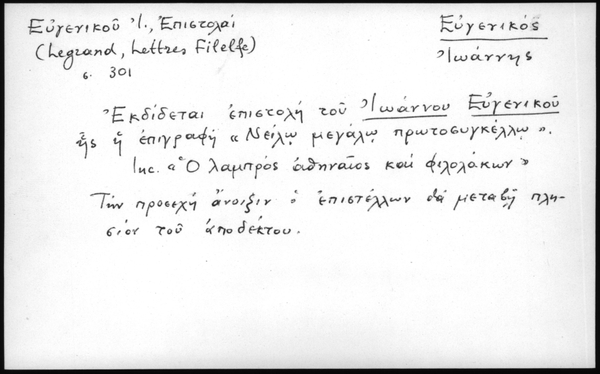 Εὐγενικοῦ Ἰ., Ἐπιστολαί
(Legrand, Lettres Filelfe)
σ. 301
Εὐγενικός
Ἰωάννης
Ἐκδίδεται ἐπιστολή τοῦ Ἰωάννου Εὐγενικοῦ
ἧς ἡ ἐπιγραφή «Νείλῳ μεγάλῳ πρωτοσυγκέλλῳ».
Inc. «Ὁ λαμπρός ἀθηναῖος καί φιλολάκων»
Τήν προσεχῆ ἄνοιξιν ὁ ἐπιστέλλων θά μεταβῇ πλη-
σίον τοῦ ἀποδέκτου.